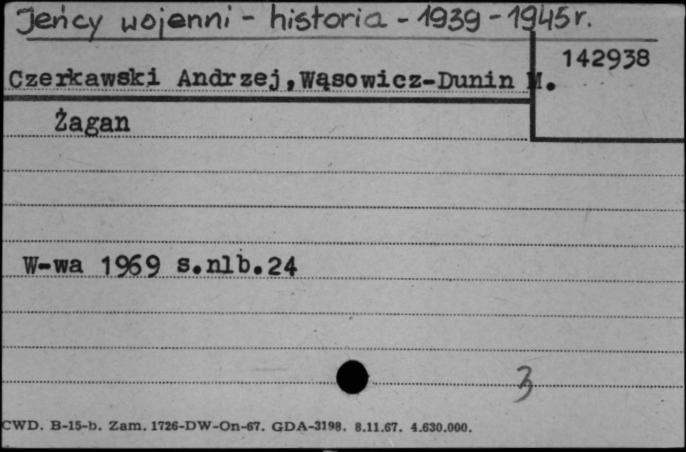 Jeńcy wojenni - historia - 1939 - 1945 r.
142938
Czerkawski Andrzej,Wąsowicz-Dunin M.
Żagan
W-wa 1969 s.nlb.24
3
CWD. B-15-b. Zam. 1726-DW-On-67. GDA-3198. 8.11.67. 4.630.000.